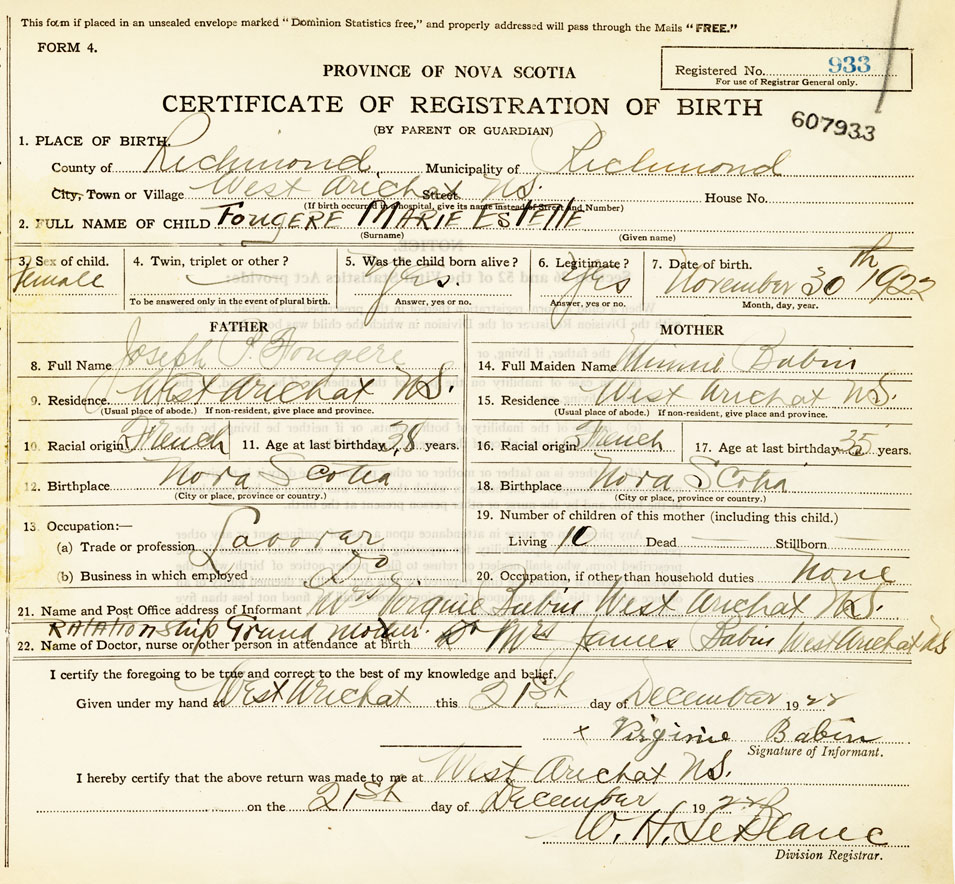 This form if placed in an unsealed envelope marked "Dominion Statistics free," and properly addressed will pass through the Mails "FREE."
FORM 4.
Registered No. 933
For use of Registrar General only.
PROVINCE OF NOVA SCOTIA
CERTIFICATE OF REGISTRATION OF BIRTH
607933
(BY PARENT OR GUARDIAN)
1. PLACE OF BIRTH.
County of Richmond, Municipality of Richmond
City, Town or Village West Arichat N.S. Street House No.
(If birth occurred in a hospital, give its name instead of Street and Number)
2. FULL NAME OF CHILD Fougere MARIE EstEllE
(Surname) (Given name)
3. Sex of child. 4. Twin, triplet or other ? 5. Was the child born alive ? 6. Legitimate ? 7. Date of birth.
Female Yes. Yes November 30th 1922
To be answered only in the event of plural birth. Answer, yes or no. Answer, yes or no. Month, day, year.
FATHER MOTHER
8. Full Name Joseph P. Fougere 14. Full Maiden Name Minnie Babin
9. Residence West Arichat N.S. 15. Residence West Arichat N.S.
(Usual place of abode.) If non-resident, give place and province. (Usual place of abode.) If non-resident, give place and province.
10. Racial origin French 11. Age at last birthday 38 years. 16. Racial origin French 17. Age at last birthday 35 years.
12. Birthplace Nova Scotia 18. Birthplace Nova Scotia
(City or place, province or country.) (City or place, province or country.)
13. Occupation:— 19. Number of children of this mother (including this child.)
(a) Trade or profession Laborer Living 10 Dead Stillborn
(b) Business in which employed 20. Occupation, if other than household duties None
21. Name and Post Office address of Informant Mrs Virginie Babin West Arichat N.S.
RElAtIonship Grand mother.
22. Name of Doctor, nurse or other person in attendance at birth Mrs James Babin West Arichat NS
I certify the foregoing to be true and correct to the best of my knowledge and belief.
Given under my hand at West Arichat this 21st day of December 1922
x Virginie Babin
Signature of Informant.
I hereby certify that the above return was made to me at West Arichat N.S.
on the 21st day of December 1922
W. H. LeBlanc
Division Registrar.